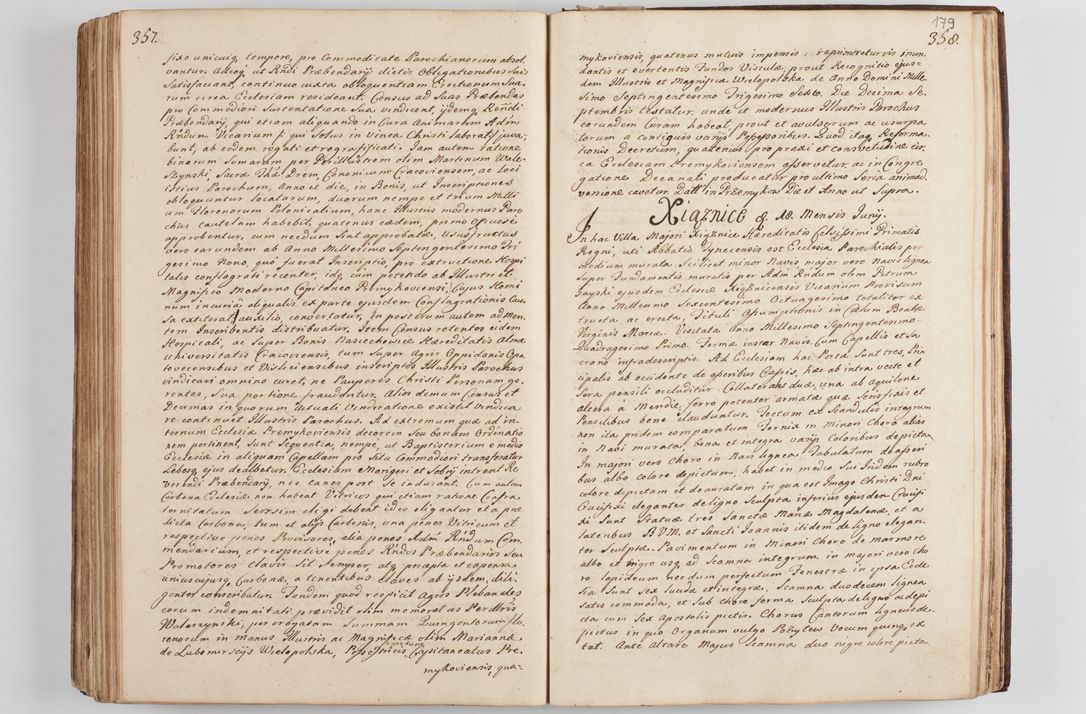 357.
fixo unicuiq tempore, pro commoditate Parochianorum absol
vantur. Adeoq ut Rndi Præbendarij dictis Obligationibus suis
satisfaciant, continuo juxta obloquentiam Erectionum sua,
rum circa Ecclesiam resideant. Census ad suas Præbendas
pro commodiori sustentatione sua vendicent, ijdemq Rendi
Præbendarij, qui etiam aliquando in Cura Animarum Adm
Rndum Vicarium qui solus in vinea Christi laborat juva,
bunt, ab eodem rogati et Jam autem ratione
binarum Sumarum per Perillustrem olim Martinum Wale,
szynski, Sacræ Thæ Drem, Canonicum Cracoviensem, ac loci
istius Parochum, Anno et die, in Bonis, ut Inscriptiones
obloquuntur locatarum, duorum nempe et trium Milli
um Florenorum Polonicalium, hanc Illustris modernus Paro
chus cautelam habebit, quatenus eædem, primo officiose
approbentur, cum necdum sint approbatæ, Ususfructus
vero earundem ab Anno Millesimo Septingentesimo Tri
gesimo Nono, quo fuerat Inscriptio, pro extructione Hospi
talis conflagrati recenter, idq cum petendo ab Illustri et
Magnifico Moderno Capitaneo Præmykoviensi, (cujus Homi
num incuria, aliqualis ex parte ejusdem Conflagrationis Cau
sa extiterat) auxilio, convertatur, in posterum autem ad men,
tem Inscribentis distribuatur. Item Census retentos eidem
Hospitali, ac super Bonis Nasiechowice Hæreditatis Almæ
Universitatis Cracoviensis, tum super Agris Oppidanis Opa
tovecensibus et Visliciensibus inscriptos Illustris Parochus
vindicari omnino curet, ne Pauperes Christi Personam ge,
rentes, sua portione fraudentur. Alios demum Census et
Decimas in quorum actuali vindicatione existit vindica
re continuet Illustris Parochus. Ad extremum quæ ad in,
ternum Ecclesiæ Præmykoviensis decorem seu bonam Ordinatio
nem pertinent, sunt sequentia, nempe, ut Baptisterium e medio
Ecclesiæ in aliquam Capellam pro situ commodiori transferatur
Labesq ejus dealbetur. Ecclesiam Mongeri et Sobrij intrent Re
verendi Præbendarij, nec canes post se inducant. Cum autem
Carbona Ecclesiæ non habeat Vitricos qui etiam ratione Confra
ternitatum seorsim eligi debeat ideo eligantur et a præ
dicta Carbona, tum et alijs Carbonis, una penes Vitricum et
respective penes Provisores, alia penes Adm Rndum Com,
mendarium, et respective penes Rndos Præbendarios seu
Promotores clavis sit semper, utq percepta et expensa
uniuscujusq Carbonæ, a tenentibus Claves ab ijsdem, dili,
genter conscribatur. Tandem quod respicit Agros Plebanales
eorum indemnitati prævidit olim memoratus Perillris
Waleszynski, per erogatam summam Quingentorum flo
renorum in manus Illustris ac Magnificæ olim Mariannæ
de Lubomirscijs Wielopolska, Capitaneatus Præ,
mykoviensis, qua=
179
358.
mykoviensis, quatenus mutuis impensis, repurnretur vis inun,
dantis et evertentis Fundos Vistulæ, prout Recognitio ejus,
dem Illustris et Magnificæ Wielopolska de Anno Domini Mille
simo Septingentesimo Trigesimo Sexto, Die Decima Se,
ptembris testatur, unde et modernus Illustris Parochus
eorundem Curam habeat, prout et avulsorum ac usurpa
torum a contiguis varijs Possessoribus. Quod itaq Reforma,
tionis Decretum, quatenus pro praxi et consvetudine cir,
ca Ecclesiam Præmykoviensem asservetur, ac in Congre,
gatione Decanali producatur pro ultimo seria animad,
versione cavetur. Datt in Præmykow Die et Anno ut supra.
Xiąznice & 18. Mensis Junij.
In hac Villa Majori Xięznice Hæreditatis Celsissimi Primatis
Regni, uti Abbatis Tynecensis est Ecclesia Parochialis per
medium murata scilicet minor Navis, major vero navis lignea
super Fundamentis muratis per Adm Rndum olim Petrum
Gayski ejusdem Ecclesiæ Xięznicensis Vicarium Provisum
Anno Millesimo Sexcentesimo Octuagesimo totaliter ex
tructa ac erecta, Tituli Assumptionis in Cælum Beatæ
Virginis Mariæ. Visitata Anno Millesimo Septingentesimo
Quadragesimo Primo. Formæ instar Navis, cum Capellis et sa
crario infradescriptis. Ad Ecclesiam hac Porta sunt tres, Prin
cipalis ab occidente de asseribus Crassis, hæc ab intra vecte et
sera pensili occluditur. Collaterales duæ, una ab Aquilone
altera a Meridie, ferro potenter armatæ quæ sensficis et
Pensulibus bene clauduntur. Tectum ex Scandulis integrum
non ita pridem comparatum. Fornix in Minori Choro alias
in Navi murata, bona et integra varijs coloribus depicta
In majori vero choro in Navi lignea, Tabulatum de asseri
bus albo colore depictum, habet in medio sui Tridem rubro
colore depictam et deauratam in qua est Imago Christi Dni
Crucifixi eleganter de ligno sculpta, inferius ejusdem Crucifi
xi sunt Statuæ tres Sanctæ Mariæ Magdalenæ, et a
lateribus B.V.M. et Sancti Joannis itidem de ligno elegan,
ter sculptæ. Pavimentum in Minori Choro de marmore
albo et nigro usq ad Scamna integrum, in majori vero cho
ro lapideum necdum perfectum. Fenestræ in ipsa Eccle
sia sunt sex lucidæ et integræ, Scamna duodecim lignea
satis commoda, et sub choro forma sculpta de ligno adepi
cta cum sex Apostolis pictis. Chorus Cantorum ligneus de,
pictus in quo Organum vulgo Pozytew Vocum quinq ex
tat. Ante Altare Majus Scamna duo nigro colore picta